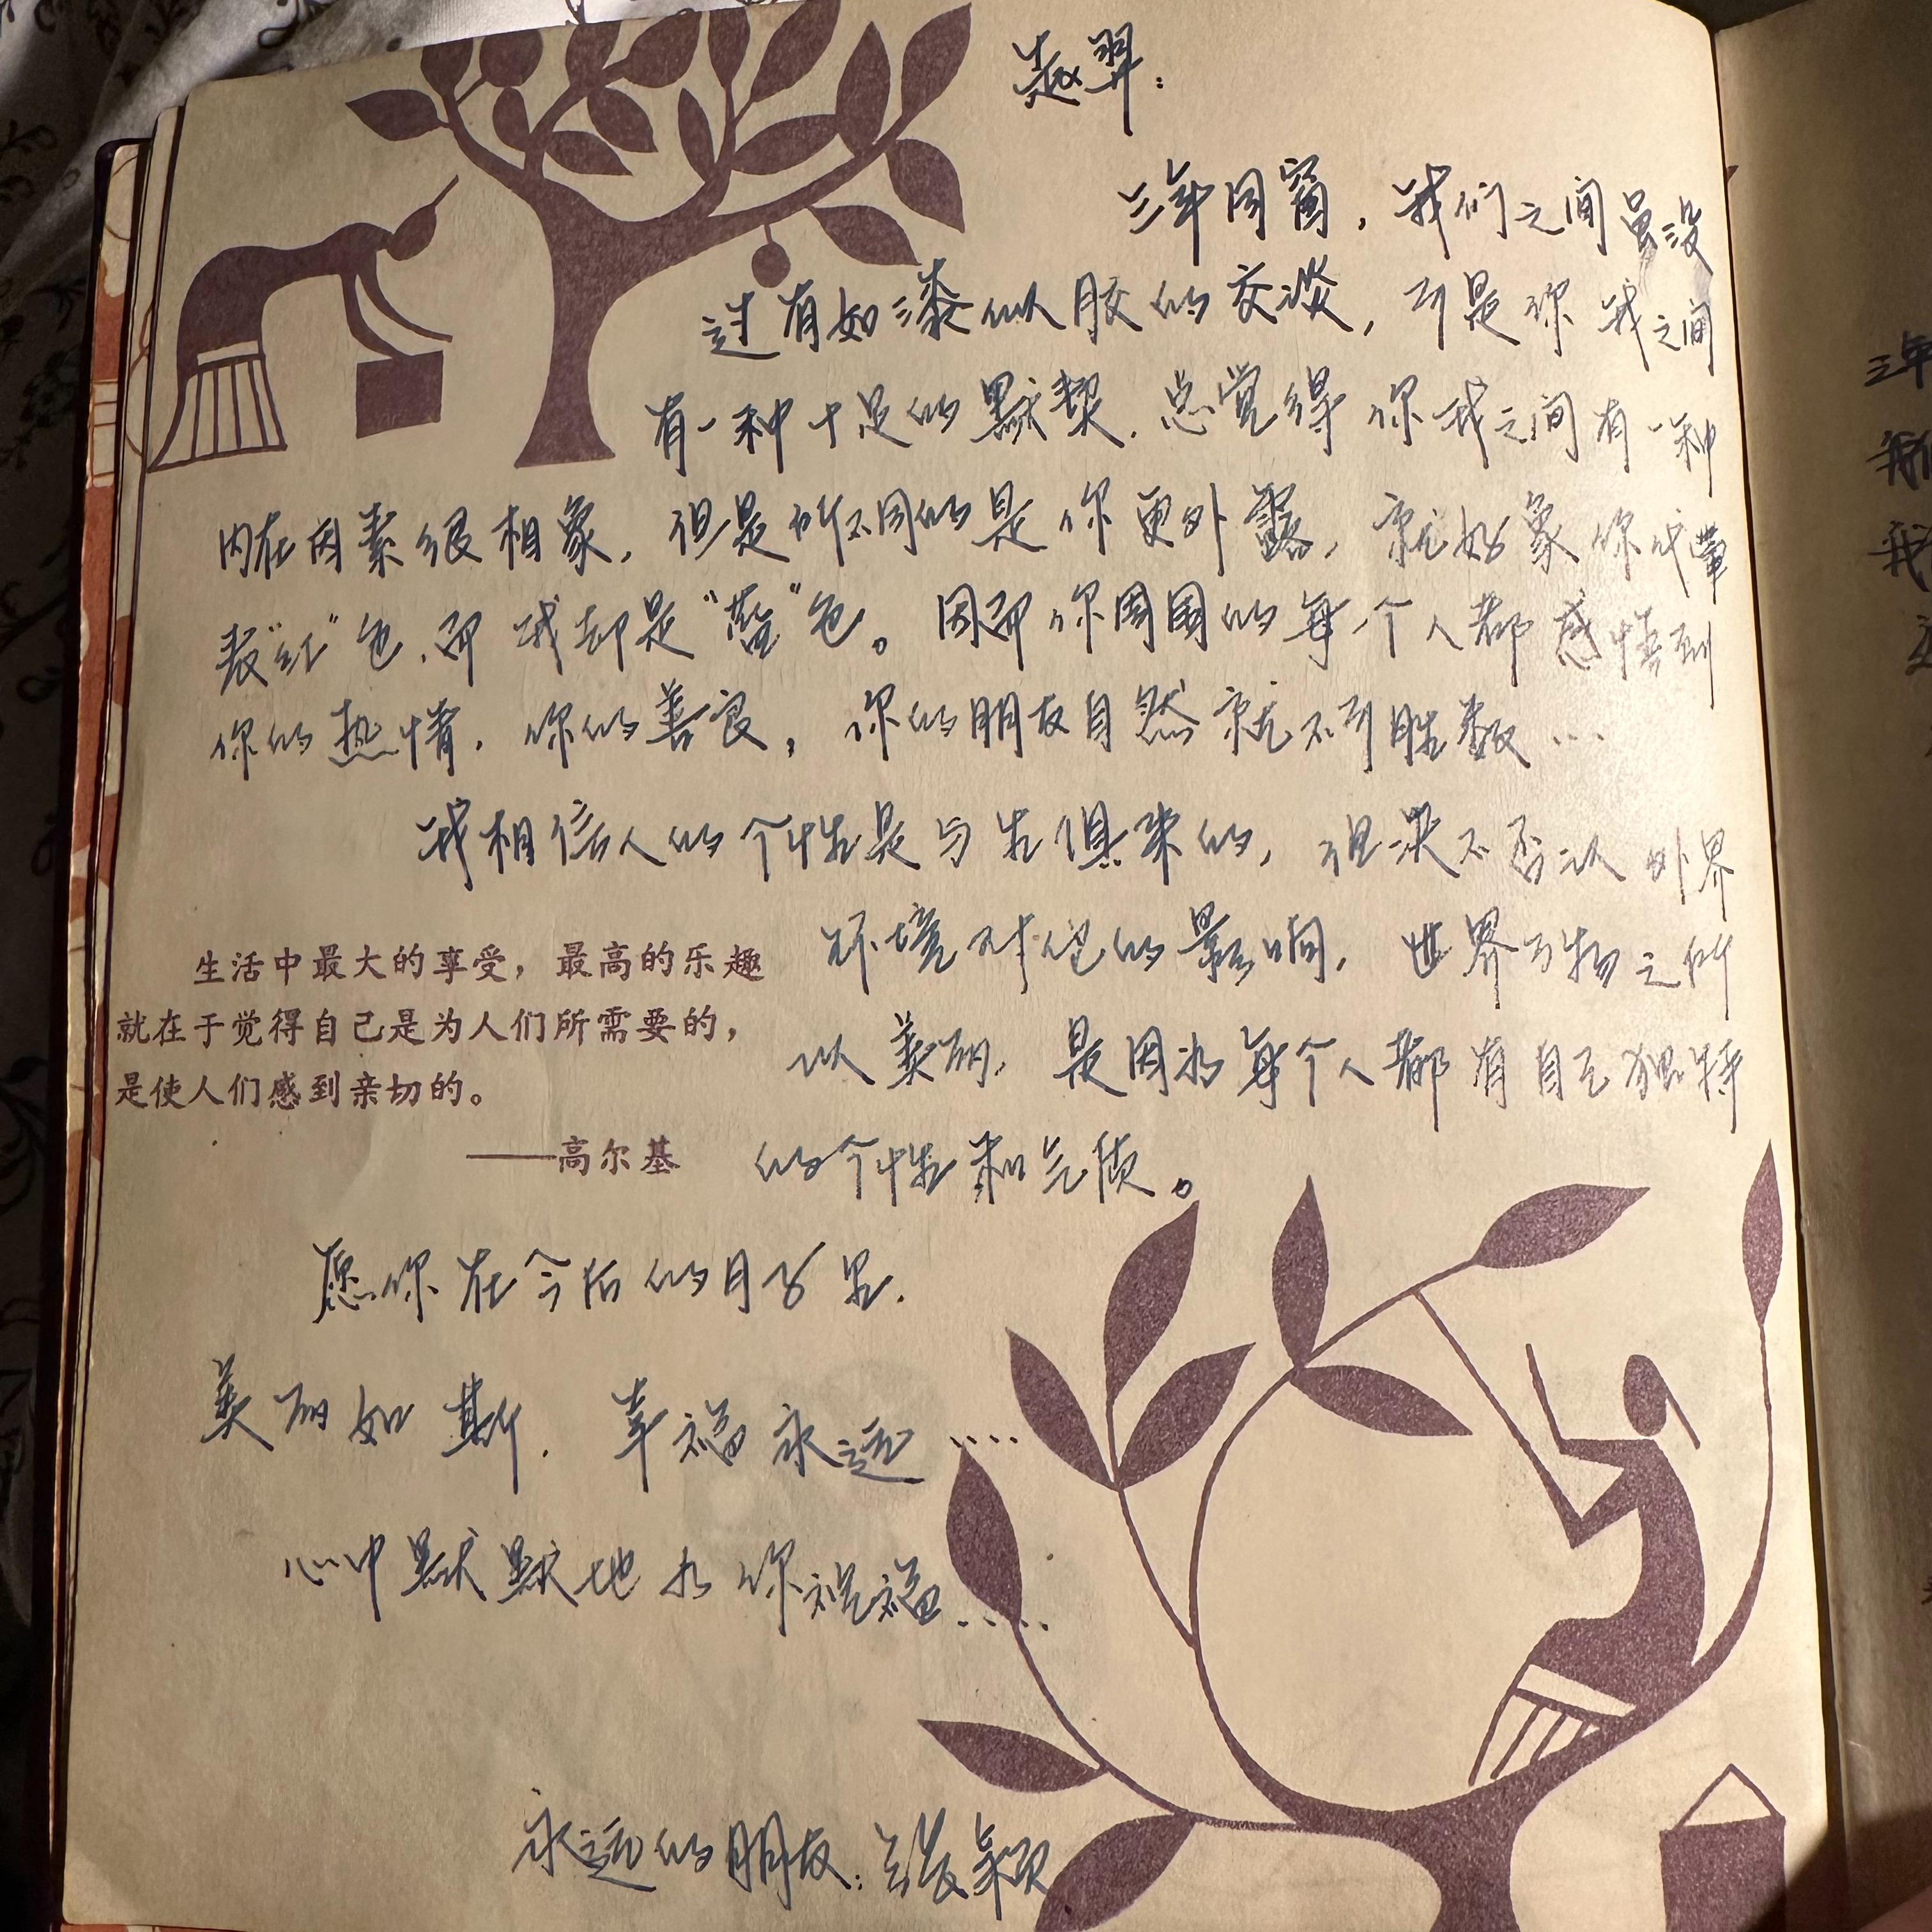 赵羿：
三年同窗，我们之间虽没
过有如漆似胶的交谈，可是你我之间
有一种十足的默契．总觉得你我之间有一种
内在因素很相象，但是所不同的是你更外露，就好象你代
表“红”色，而我却是“蓝”色。因而你周围的每一个人都感
你的热情，你的善良，你的朋友自然就不可胜数…
我相信人的个性是与生俱来的，但决不否认外界
环境对它的影响，世界万物之所
以美丽，是因为每个人都有自己独特
的个性和气质。
生活中最大的享受，最高的乐趣
就在于觉得自己是为人们所需要的，
是使人们感到亲切的。
——高尔基
愿你在今后的日子里．
美丽如斯．幸福永远....
心中默默地为你祝福.....
永远的朋友：张颖
三年
我